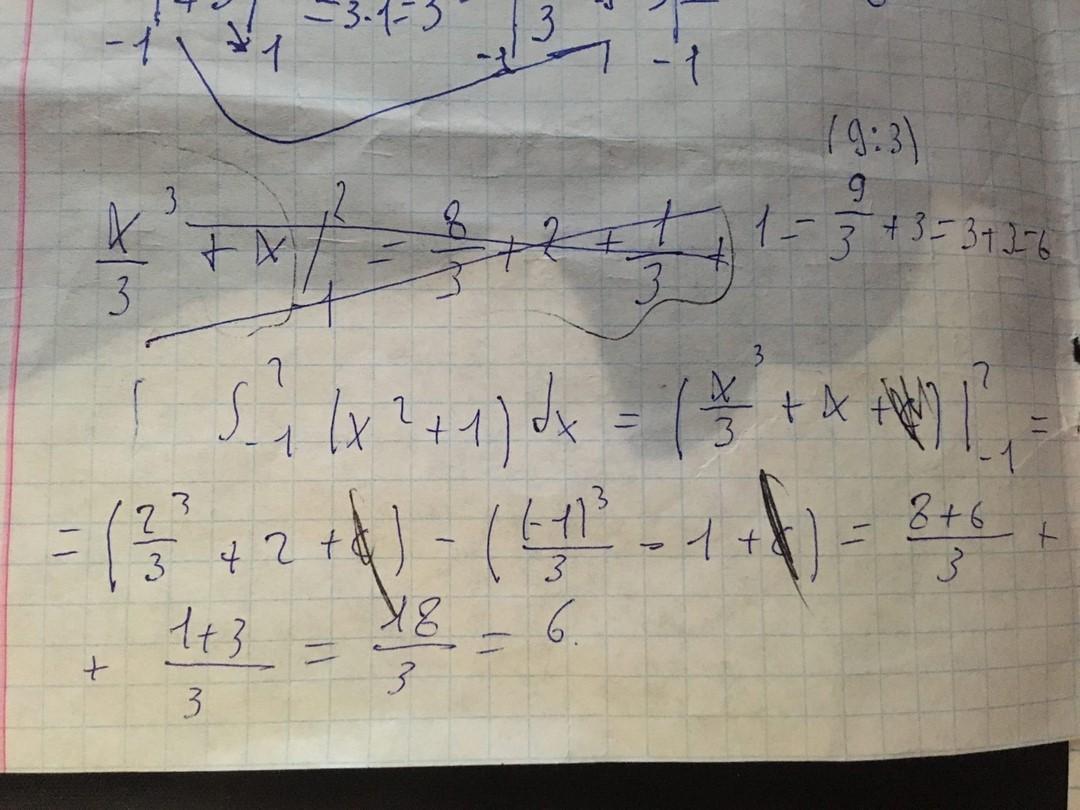 = 3·1 = 3
-1 1 -1 3 -1
(9:3)
x³/3 + x |² ₁ = 8/3 + 2 + 1/3 + 1 = 9/3 + 3 = 3+3=6
∫₋₁² (x² + 1) dx = (x³/3 + x + ) |₋₁² =
= (2³/3 + 2 + ) - ((-1)³/3 - 1 + ) = 8+6/3 +
+ 1+3/3 = 18/3 = 6.